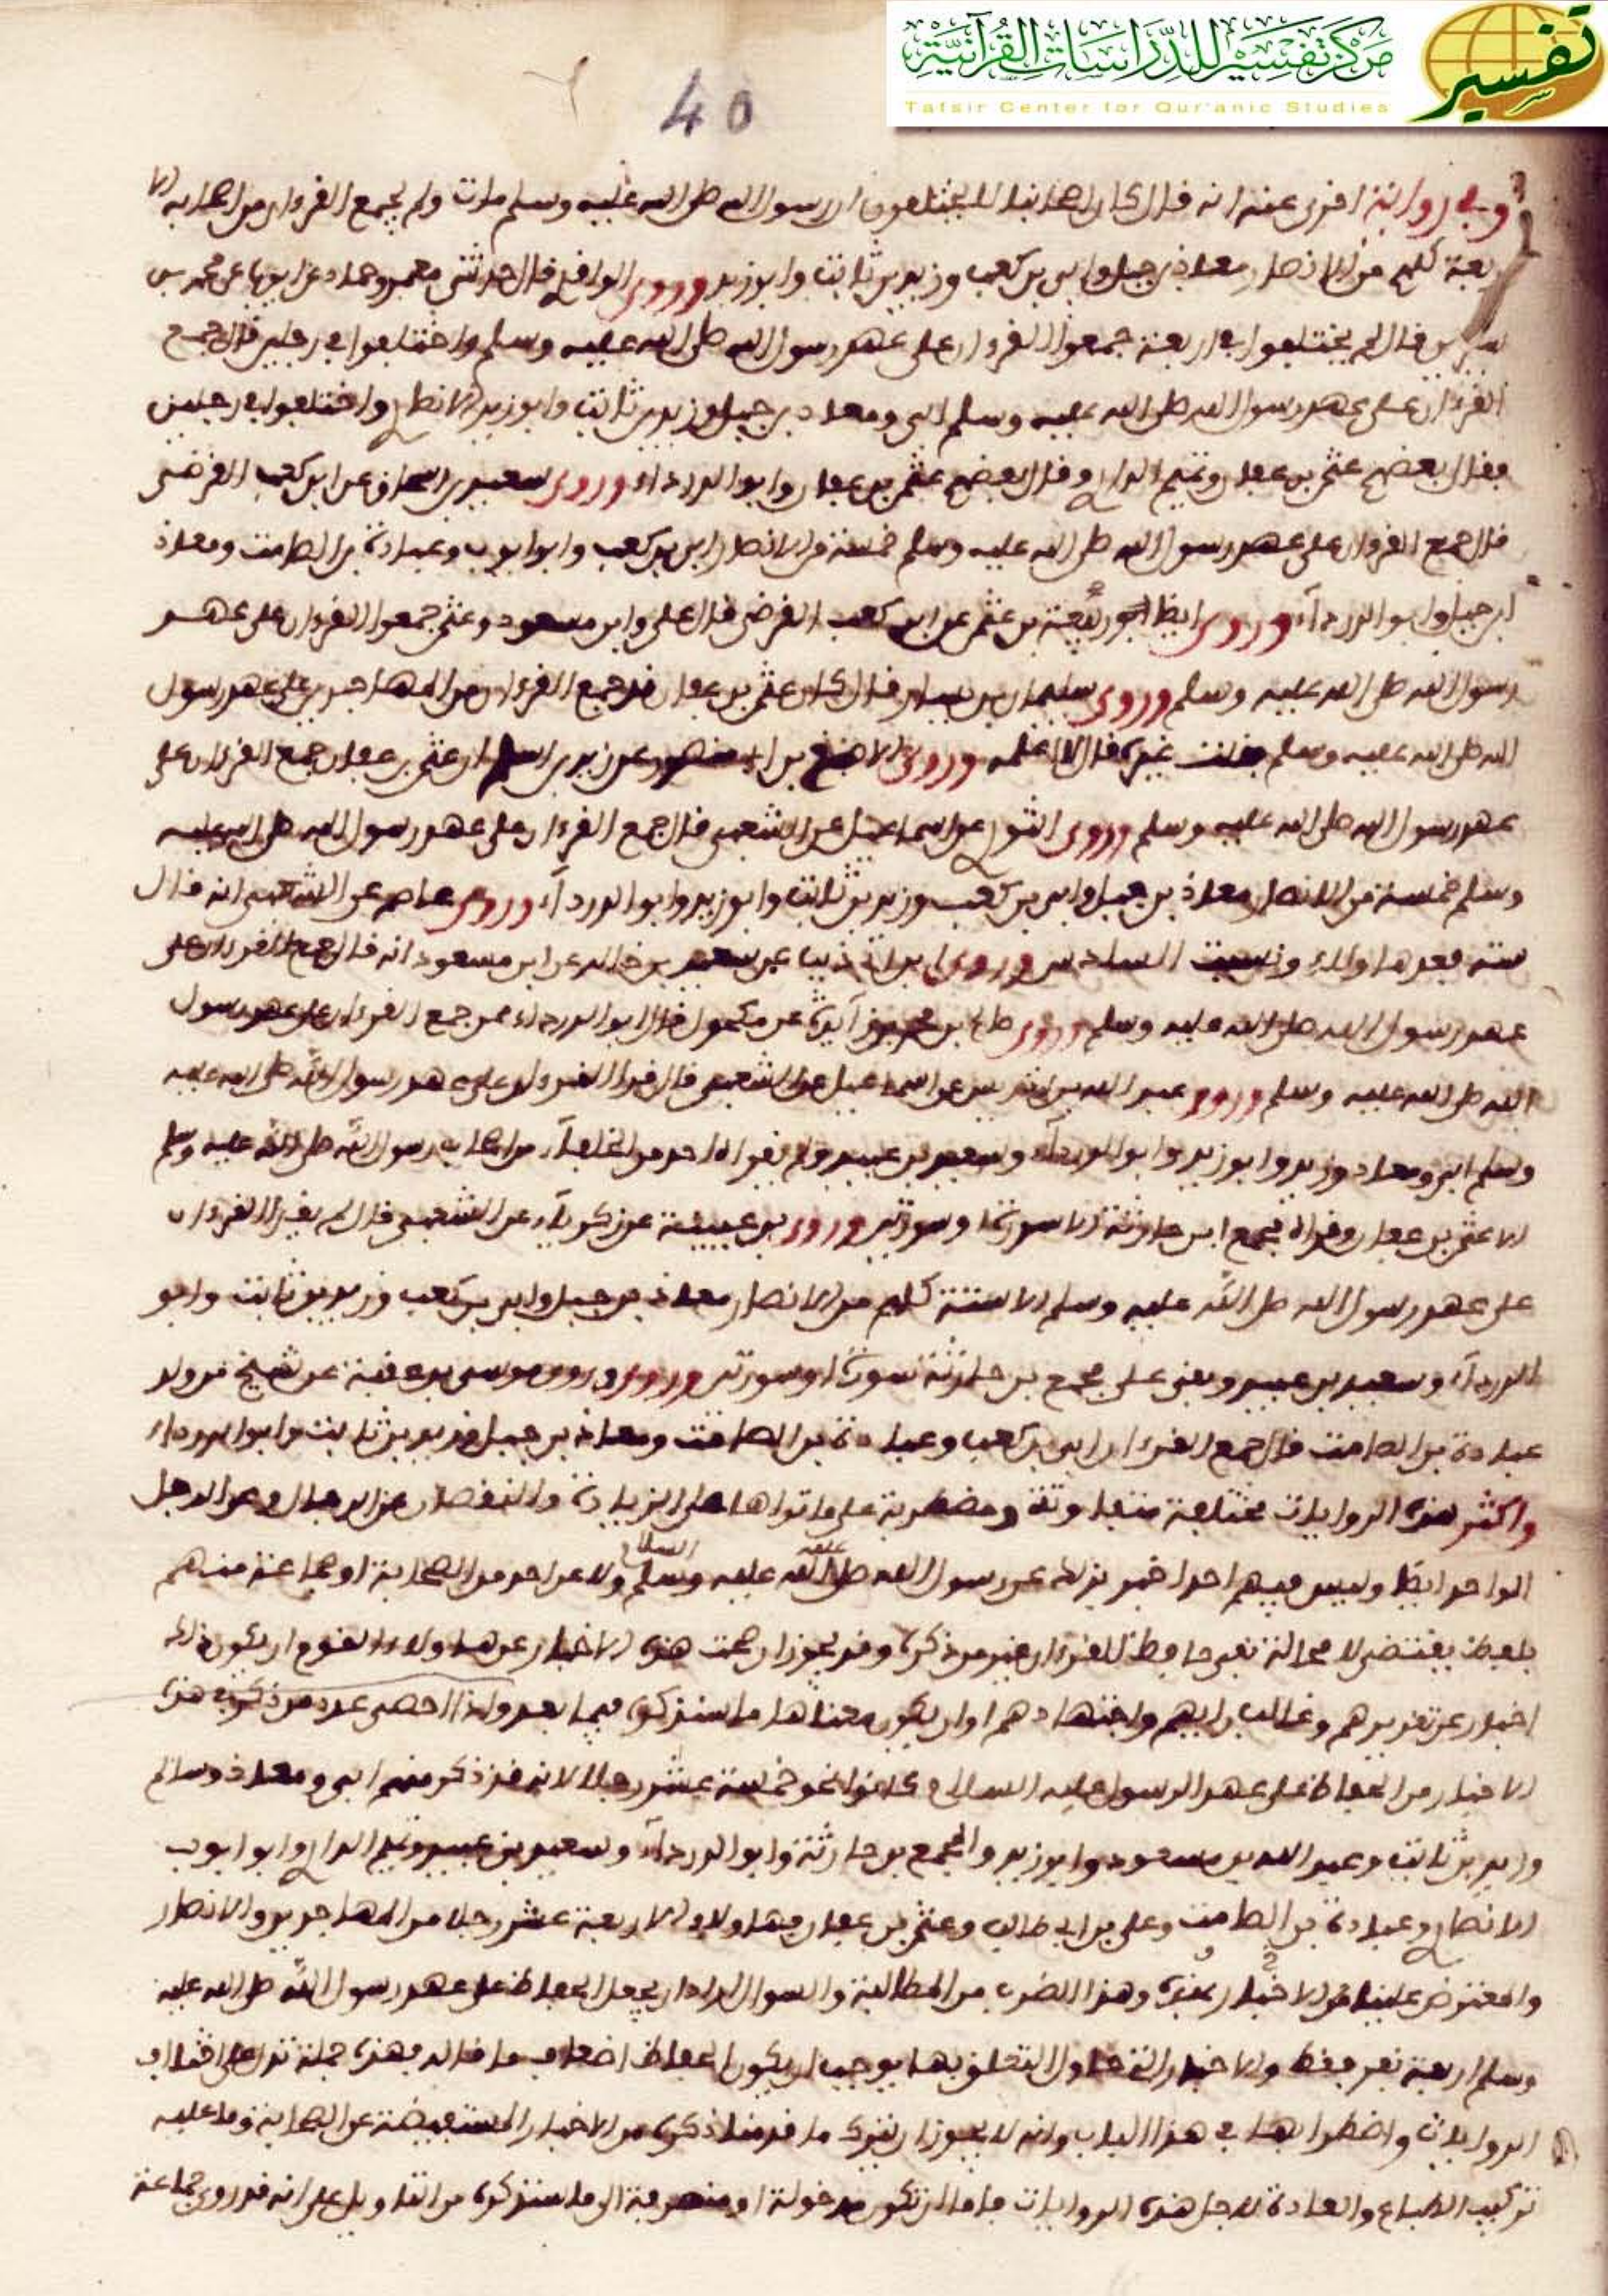 مركز تفسير للدراسات القرآنية
Tafsir Center for Qur'anic Studies
تفسير
40
وفي رواية اخرى عنه انه قال كان اصحابنا لا يختلفون ان رسول الله صلى الله عليه وسلم مات ولم يجمع القرءان من اصحابه الا
اربعة كلهم من الانصار معاذ بن جبل وابي بن كعب وزيد بن ثابت وابو زيد وروى الواقدي قال حدثني معمر وحماد عن ايوب عن محمد بن
سيرين قال لم يختلفوا في اربعة جمعوا القرءان على عهد رسول الله صلى الله عليه وسلم واختلفوا في رجلين قال جمع
القرءان على عهد رسول الله صلى الله عليه وسلم ابي ومعاد بن جبل وزيد بن ثابت وابو زيد الانصاري واختلفوا في رجلين
فقال بعضهم عثمن بن عفان وتميم الداري وقال بعضهم عثمن بن عفان وابو الدرداء وروى سعيد بن اسحاق عن ابن كعب القرضي
قال جمع القرءان على عهد رسول الله صلى الله عليه وسلم خمسة من الانصار ابي بن كعب وابو ايوب وعبادة بن الصامت ومعاذ
ابن جبل وابو الدرداء وروى ايضا ربيعة بن عثمن عن ابن كعب القرضي قال علي وابن مسعود وعثمن جمعوا القرءان على عهد
رسول الله صلى الله عليه وسلم وروى سليمان بن يسار قال كان عثمن بن عفان قد جمع القرءان من المهاجرين على عهد رسول
الله صلى الله عليه وسلم فقلت غيره قال لا اعلمه وروى عن زيد بن اسلم ان عثمن بن عفان جمع القرءان على
عهد رسول الله صلى الله عليه وسلم وروى الثوري عن اسماعيل عن الشعبي قال جمع القرءان على عهد رسول الله صلى الله عليه
وسلم خمسة من الانصار معاذ بن جبل وابي بن كعب وزيد بن ثابت وابو زيد وابو الدرداء وروى عاصم عن الشعبي انه قال
ستة فعد هاولاء ونسيت السادس وروى ابن ابي ذيب عن سعيد بن خالد عن ابن مسعود انه قال جمع القرءان على
عهد رسول الله صلى الله عليه وسلم وروى عن مكحول قال ابو الدرداء ممن جمع القرءان على عهد رسول
الله صلى الله عليه وسلم وروى عبد الله بن ادريس عن اسماعيل عن الشعبي قال قرا القرءان على عهد رسول الله صلى الله عليه
وسلم ابي ومعاد وزيد وابو زيد وابو الدرداء وسعيد بن عبيد ولم يقراه احد من الخلفاء من اصحاب رسول الله صلى الله عليه وسلم
الا عثمن بن عفان وقراه مجمع ابن حارثة الا سورة او سورتين وروى ابن عيينة عن زكرياء عن الشعبي قال لم يقرا القرءان
على عهد رسول الله صلى الله عليه وسلم الا ستة كلهم من الانصار معاذ بن جبل وابي بن كعب وزيد بن ثابت وابو
الدرداء وسعيد بن عبيد وبقى على مجمع بن حارثة سورة او سورتين وروى وروى موسى بن عقبة عن شيخ من ولد
عبادة بن الصامت قال جمع القرءان ابي بن كعب وعبادة بن الصامت ومعاذ بن جبل وزيد بن ثابت وابو الدرداء
واكثر هذه الروايات مختلفة متفاوتة ومضطربة على ما تراها على الزيادة والنقصان عن الرجال وعن الرجل
الواحد ايضا وليس فيهم احد اخبر بذلك عن رسول الله صلى الله عليه وسلم ولا عن احد من الصحابة او جماعة منهم
عليه السلام
بلفظ يقتضي لا محالة نفي حافظ للقرءان غير من ذكره وقد يجوز ان صحت هذه الاخبار عن هاولاء القوم ان يكون ذلك
اخبار عن تقديرهم وغالب رايهم واجتهادهم او ان يكون معناها ما سنذكره فيما بعد واذا احصي عدد من ذكر في هذه
الاخبار من الحفاظ على عهد الرسول عليه السلام كانوا نحو خمسة عشر رجلا لانه قد ذكر منهم ابي ومعاذ وسالم
وزيد بن ثابت وعبد الله بن مسعود وابو زيد والمجمع بن حارثة وابو الدرداء وسعيد بن عبيد وتميم الداري وابو ايوب
الانصاري وعبادة بن الصامت وعلي بن ابي طالب وعثمن بن عفان فهاولاء الاربعة عشر رجلا من المهاجرين والانصار
والمعترض علينا من الاخبار بهذه وهذا الضرب من المطالبة والسوال اراد ان يجعل الحفاظ على عهد رسول الله صلى الله عليه
وسلم اربعة نفر فقط والاخبار التي حاول التعلق بها يوجب ان يكون الحفاظ اضعاف ما قاله فهذه جملة تدل على اختلاف
الروايات واضطرابها في هذا الباب وانه لا يجوز ان يترك ما قدمنا ذكره من الاخبار المستفيضة عن الصحابة وما عليه
تركيب الطباع والعادة لاجل هذه الروايات فاما ان تكون مدخولة او منصرفة الى ما سنذكره من التاويل على انه قد روى جماعة